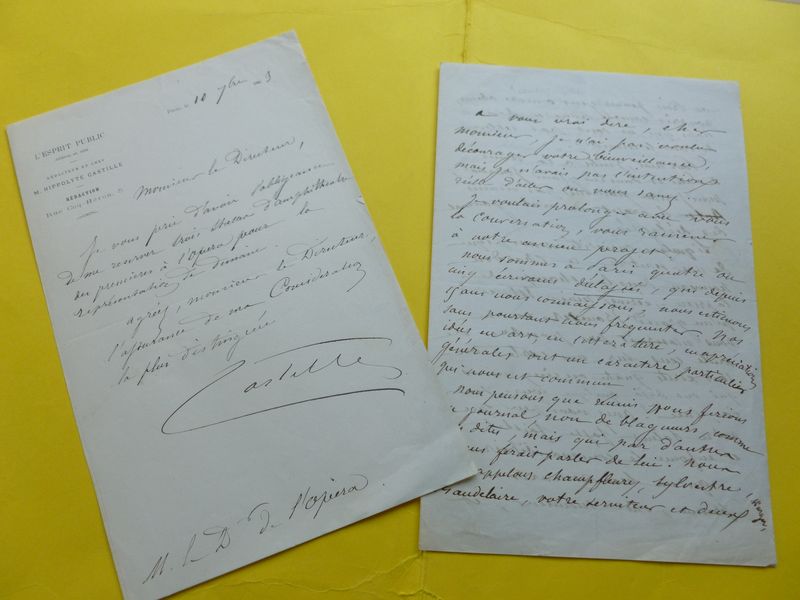 L'ESPRIT PUBLIC
RÉDACTEUR EN CHEF
M. HIPPOLYTE CASTILLE
RÉDACTION
Rue Coq-Héron, 5
Paris, le 10 7bre 3
Monsieur le Directeur,
Je vous prie d'avoir l'obligeance
de me reserver trois stalles d'amphithéatre
des premières à l'opéra pour la
représentation de demain.
agréez, monsieur le Directeur,
l'assurance de ma Considération
la plus distinguée
Castille
M. le Dr de l'opéra.
a vous vrai dire, cher
monsieur je n'ai pas voulu
décourager votre bienveillance,
mais je n'avais pas l'intention
d'aller où vous
Je voulais prolonger avec vous
la conversation, vous ramener
à notre ancien projet.
nous sommes à Paris quatre ou
cinq écrivains qui depuis
15 ans nous connaissons, nous estimons
sans pourtant nous fréquenter. Nos
idées en art, en littérature, en appréciations
générales ont un caractère particulier
qui nous est commun.
nous pensons que réunis nous ferions
journal non de blagueurs, comme
dites, mais qui par d'autres
ferait parler de lui. nous
appelons champfleury, sylvestre,
Baudelaire, votre serviteur et deux